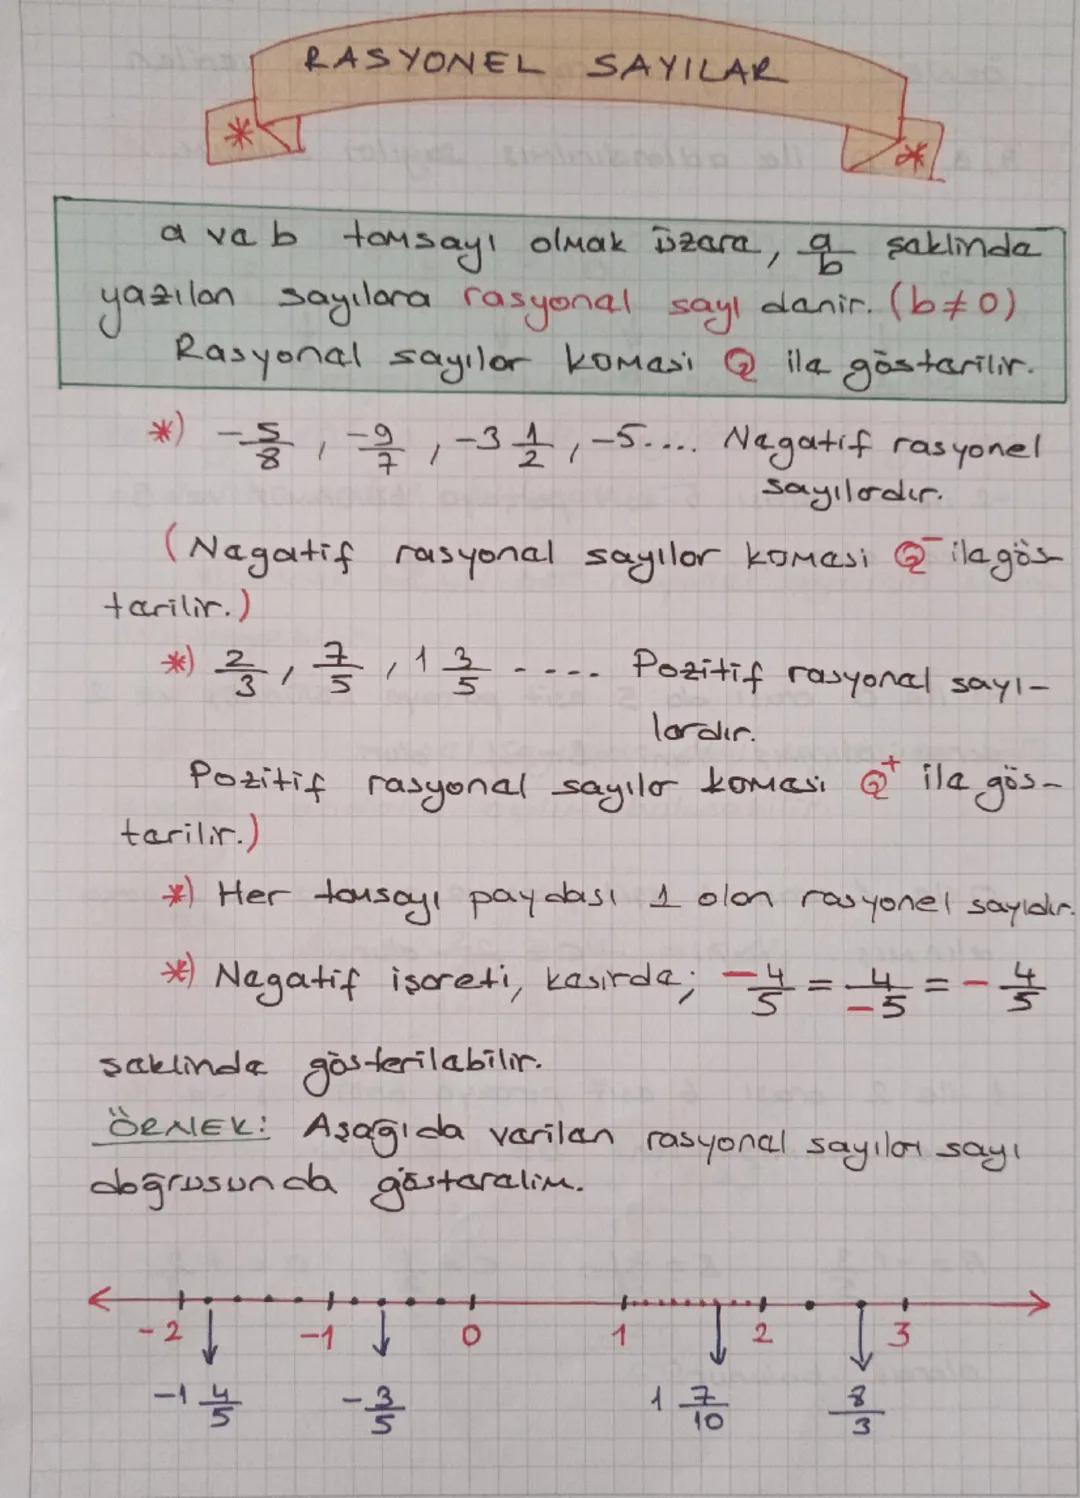 RASYONEL SAYILAR
a ve b tamsayı olmak üzere, a/b şeklinde
yazılan sayılara rasyonel sayı denir. (b≠0)
Rasyonel sayılar kümesi Q ile gösterilir.
*) -5/8, -9/7, -3 1/2, -5.... Negatif rasyonel
sayılardır.
(Negatif rasyonel sayılar kümesi Q⁻ ile gös-
terilir.)
*) 2/3, 7/5, 1 3/5 ..... Pozitif rasyonel sayı-
lardır.
Pozitif rasyonel sayılar kümesi Q⁺ ile gös-
terilir.)
*) Her tamsayı paydası 1 olan rasyonel sayıdır.
*) Negatif işareti, kesirde; -4/5 = 4/-5 = - 4/5
şeklinde gösterilebilir.
ÖRNEK: Aşağıda verilen rasyonel sayıları sayı
doğrusunda gösterelim.
-2 -1 0 1 2 3
-1 4/5 -3/5 1 7/10 8/3